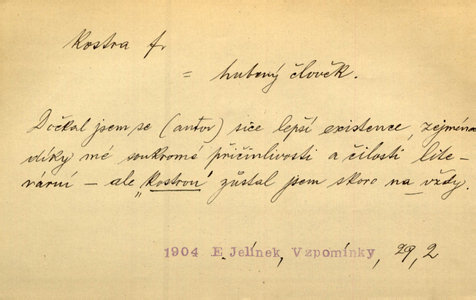 kostra f.
= hubený člověk.
Dočkal jsem se (autor) sice lepší existence, zejména
díky mé soukromé přičinlivosti a čilosti lite-
rární – ale „kostrou" zůstal jsem skoro na vždy.
1904 E. Jelínek, Vzpomínky, 29, 2